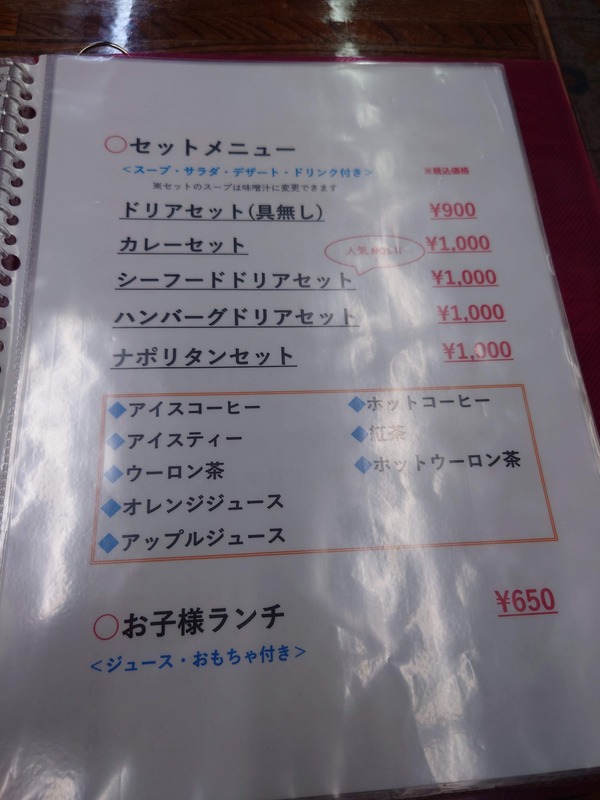 ○セットメニュー
<スープ・サラダ・デザート・ドリンク付き>
※税込価格
※セットのスープは味噌汁に変更できます
ドリアセット(具無し) ¥900
カレーセット ¥1,000
人気NO.1!
シーフードドリアセット ¥1,000
ハンバーグドリアセット ¥1,000
ナポリタンセット ¥1,000
◆アイスコーヒー ◆ホットコーヒー
◆アイスティー ◆紅茶
◆ウーロン茶 ◆ホットウーロン茶
◆オレンジジュース
◆アップルジュース
○お子様ランチ ¥650
<ジュース・おもちゃ付き>